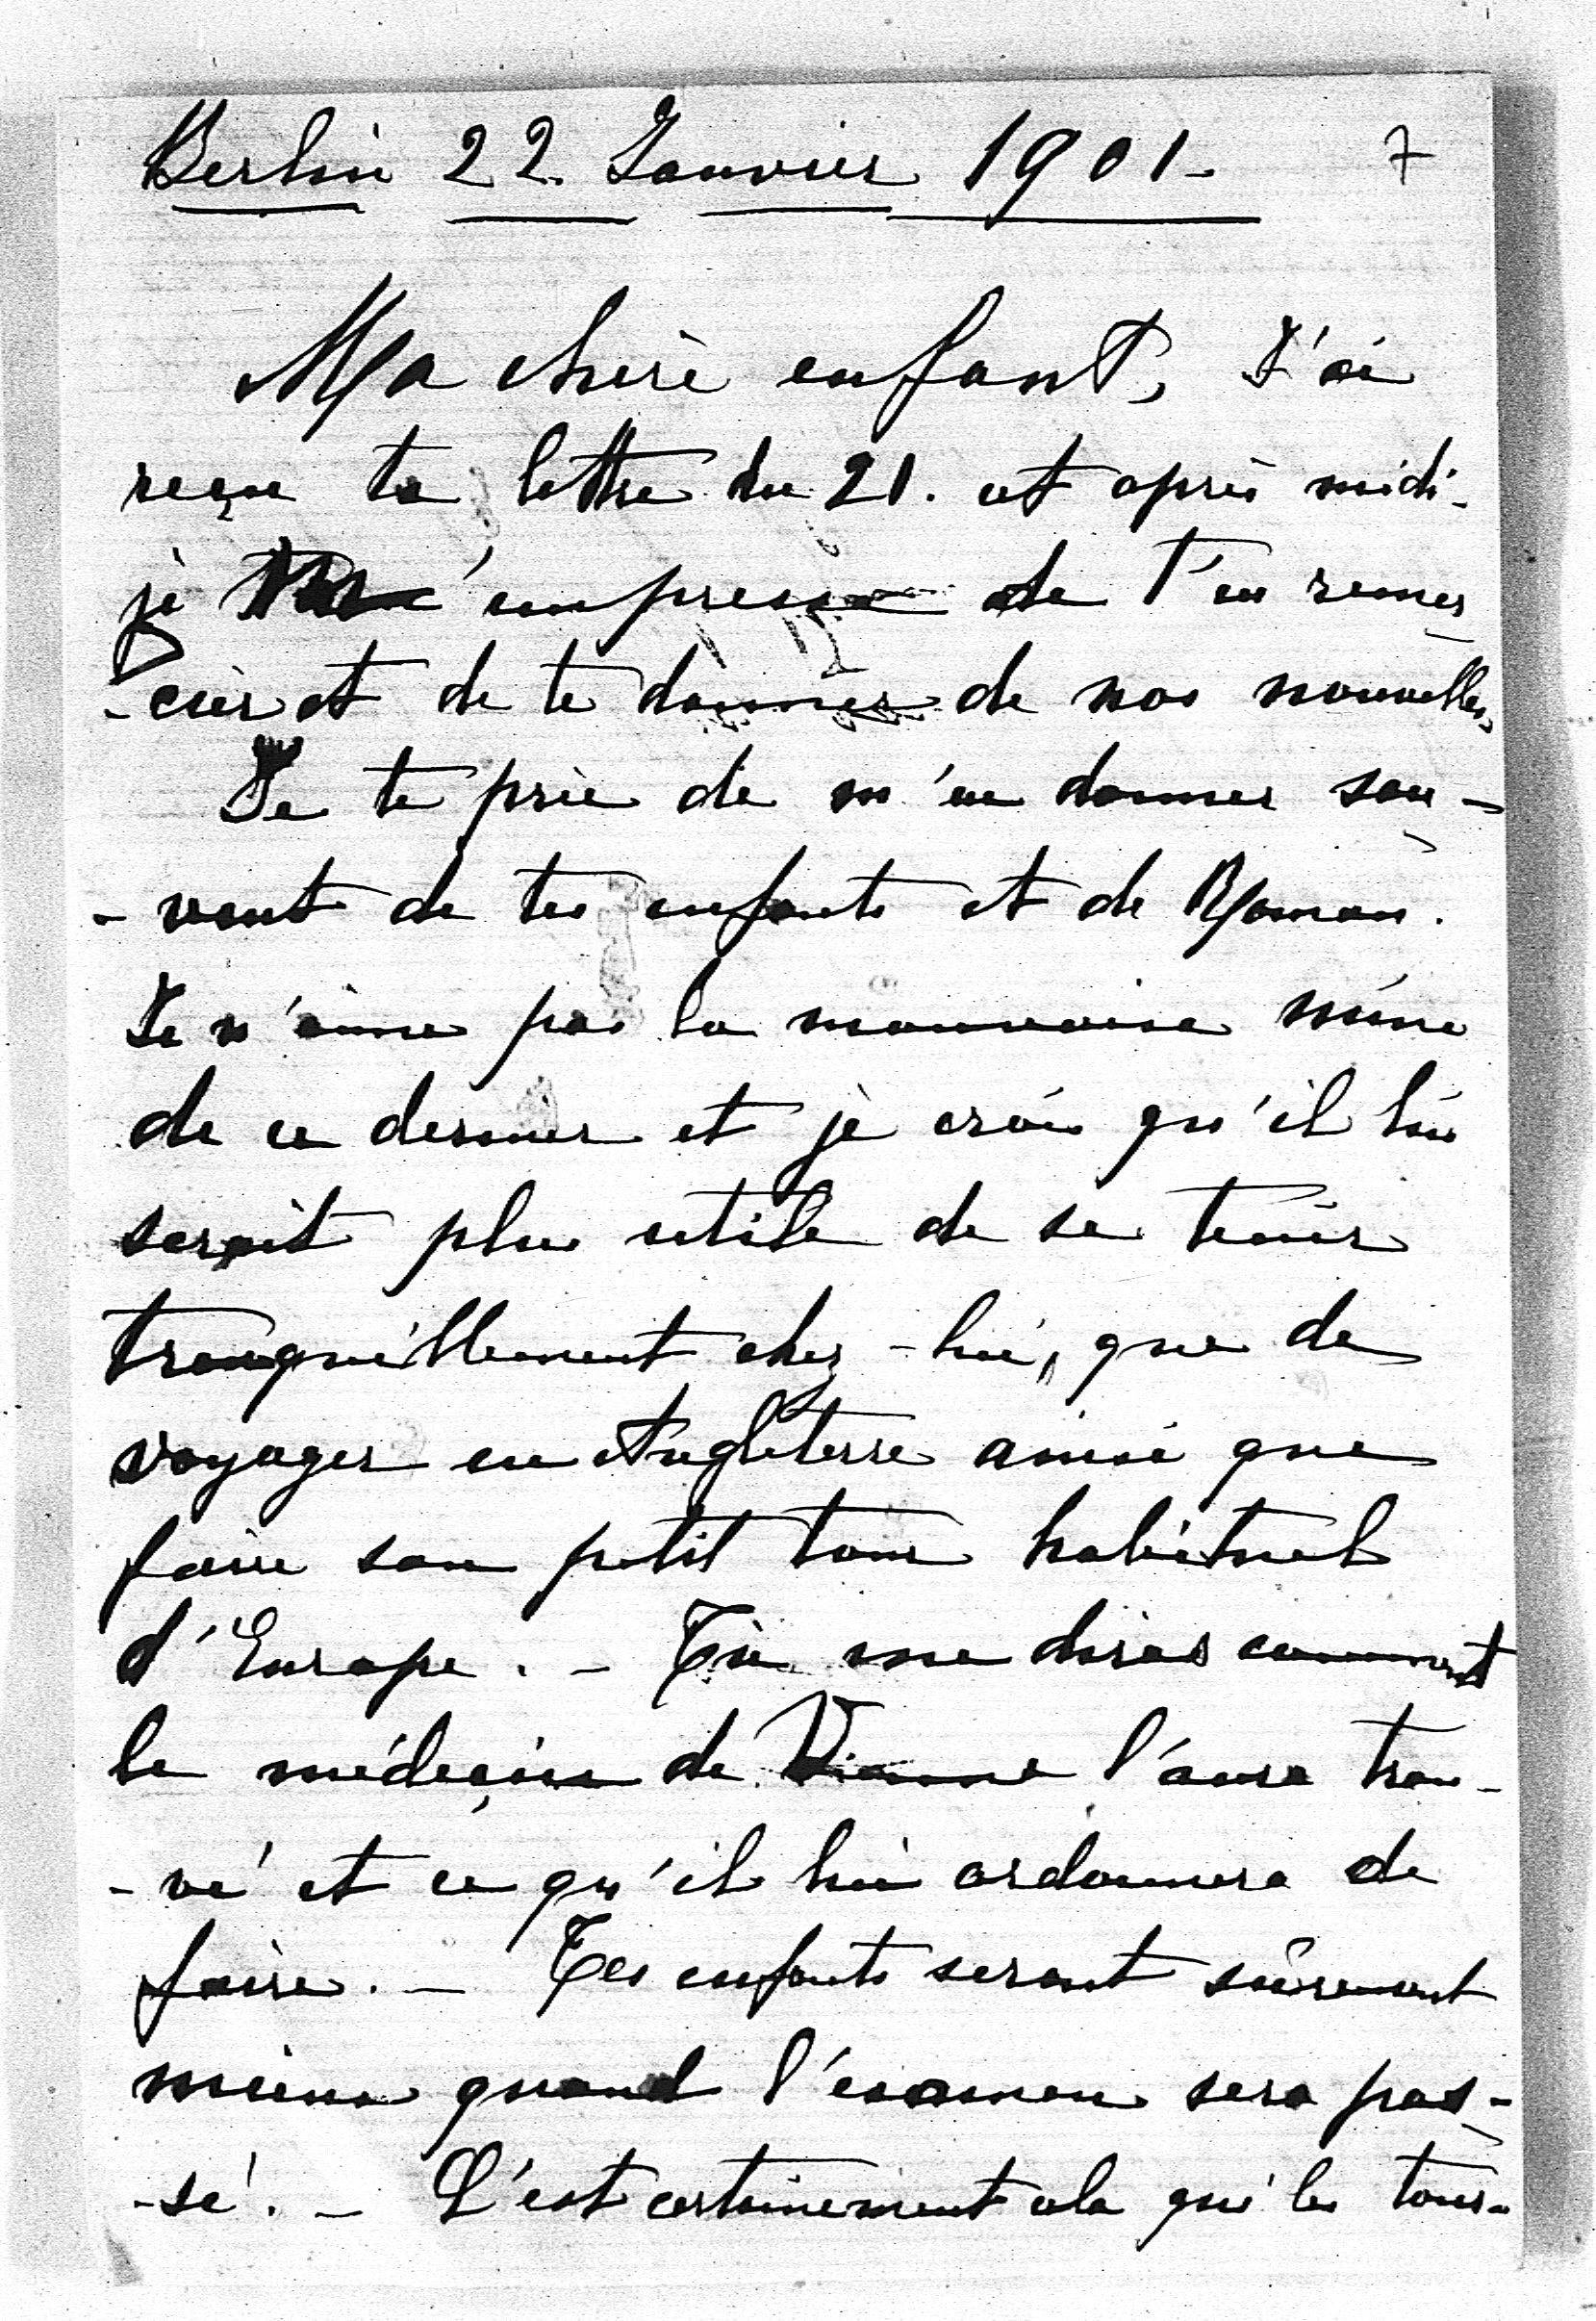 Berlin 22. Janvier 1901. 7
Ma chère enfant, J'ai
reçu ta lettre du 21. cet après midi.
je m'empresse de t'en remer
-cier et de te donner de nos nouvelles.
Je te prie de m'en donner sou-
-vent de tes enfants et de Roman.
Je n'aime pas la mauvaise mine
de ce dernier et je crois qu'il lui
serait plus utile de se tenir
tranquillement chez-lui, que de
voyager en Angleterre ainsi que
faire son petit tour habituel
d'Europe. - Tu me diras comment
le médecin de Vienne l'aura trou-
-vé et ce qu'il lui ordonnera de
faire. - Tes enfants seront sûrement
mieux quand l'examen sera pas-
-sé. - C'est certainement cela qui les tour-